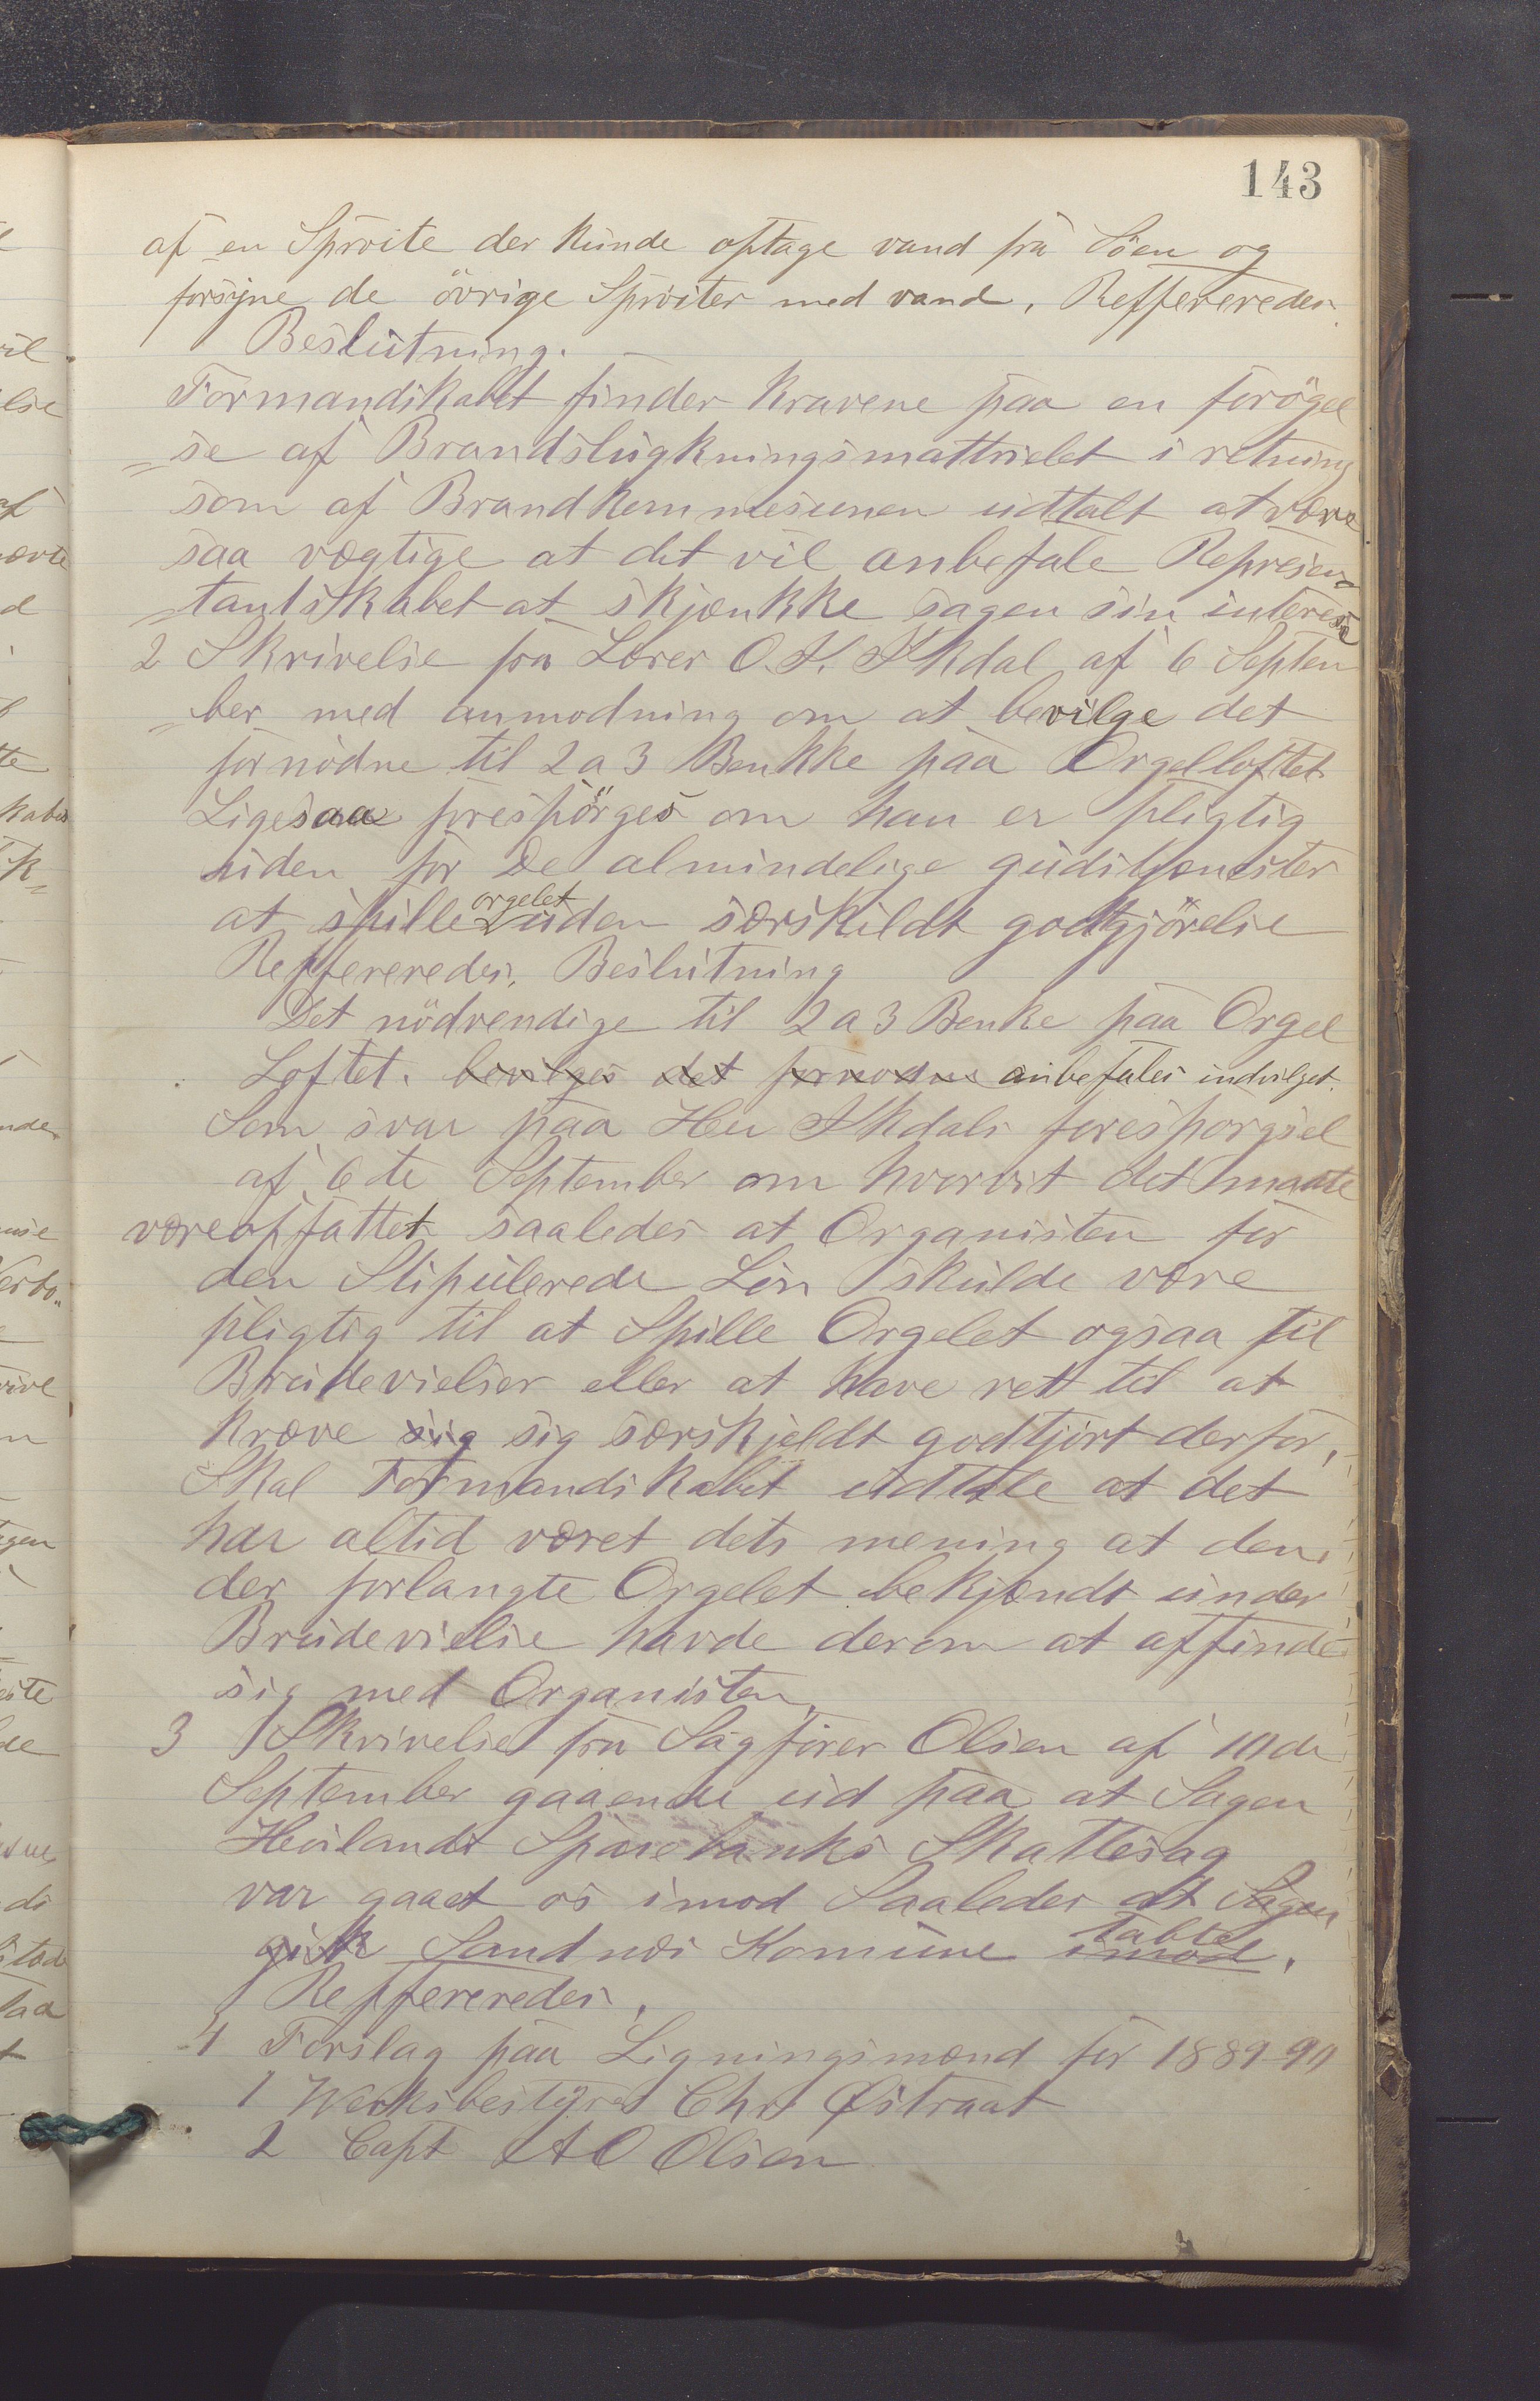 143
af en Sproite der kunde optage vand fra Söen og
forsyne de övrige Sproiter med vand. Reffereredes.
Beslutning.
Formandskabet finder Kravene paa en forögel
se af Brandslugkningsmattrielet i retning
som af Brandkommesunen udtalt at være
saa vægtige at det vil anbefale Represen=
tantskabet at skjænkke sagen sin interesse
2 Skrivelse fra Lærer O. K. Skdal af 6 Septem
ber med anmodning om at bevilge det
fornödne til 2 a 3 Benkke paa Orgelloftet
Ligesaa forespörges om han er pligtig
uden for de almindelige gudstjenester
orgelet
at spille uden særskildt godtgjörelse
Reffereredes. Beslutning
Det nödvendige til 2 a 3 Benke paa Orgel
Loftet. bevilges det fornodne anbefales indvilget.
Som svar paa Her Skdals forespörgsel
af 6te September om hvorvit det maatte
væreopfattet saaledes at Organisten for
den Stipulerede Lön skulde være
pligtig til at Spille Orgelet ogsaa til
Brudevielser eller at have rett til at
kræve sig sig særskjeldt godtjört derfor,
Skal Formandskabet udtale at det
har altid været dets mening at den
der forlangte Orgelet bekjændt under
Brudevielse havde derom at affinde
sig med Organisten.
3 Skrivelse fra Sagförer Olsen af 10de
September gaaende ud paa at Sagen
Höilands Sparebanks Skattesag
var gaaet os imod Saaledes at Sagen
tabte
gik Sandnæs Komune imod.
Reffereredes.
4 Forslag paa Ligningsmænd for 1889-90
1 Værksbestyrer Chr Østraat
2 Capt A O Olsen